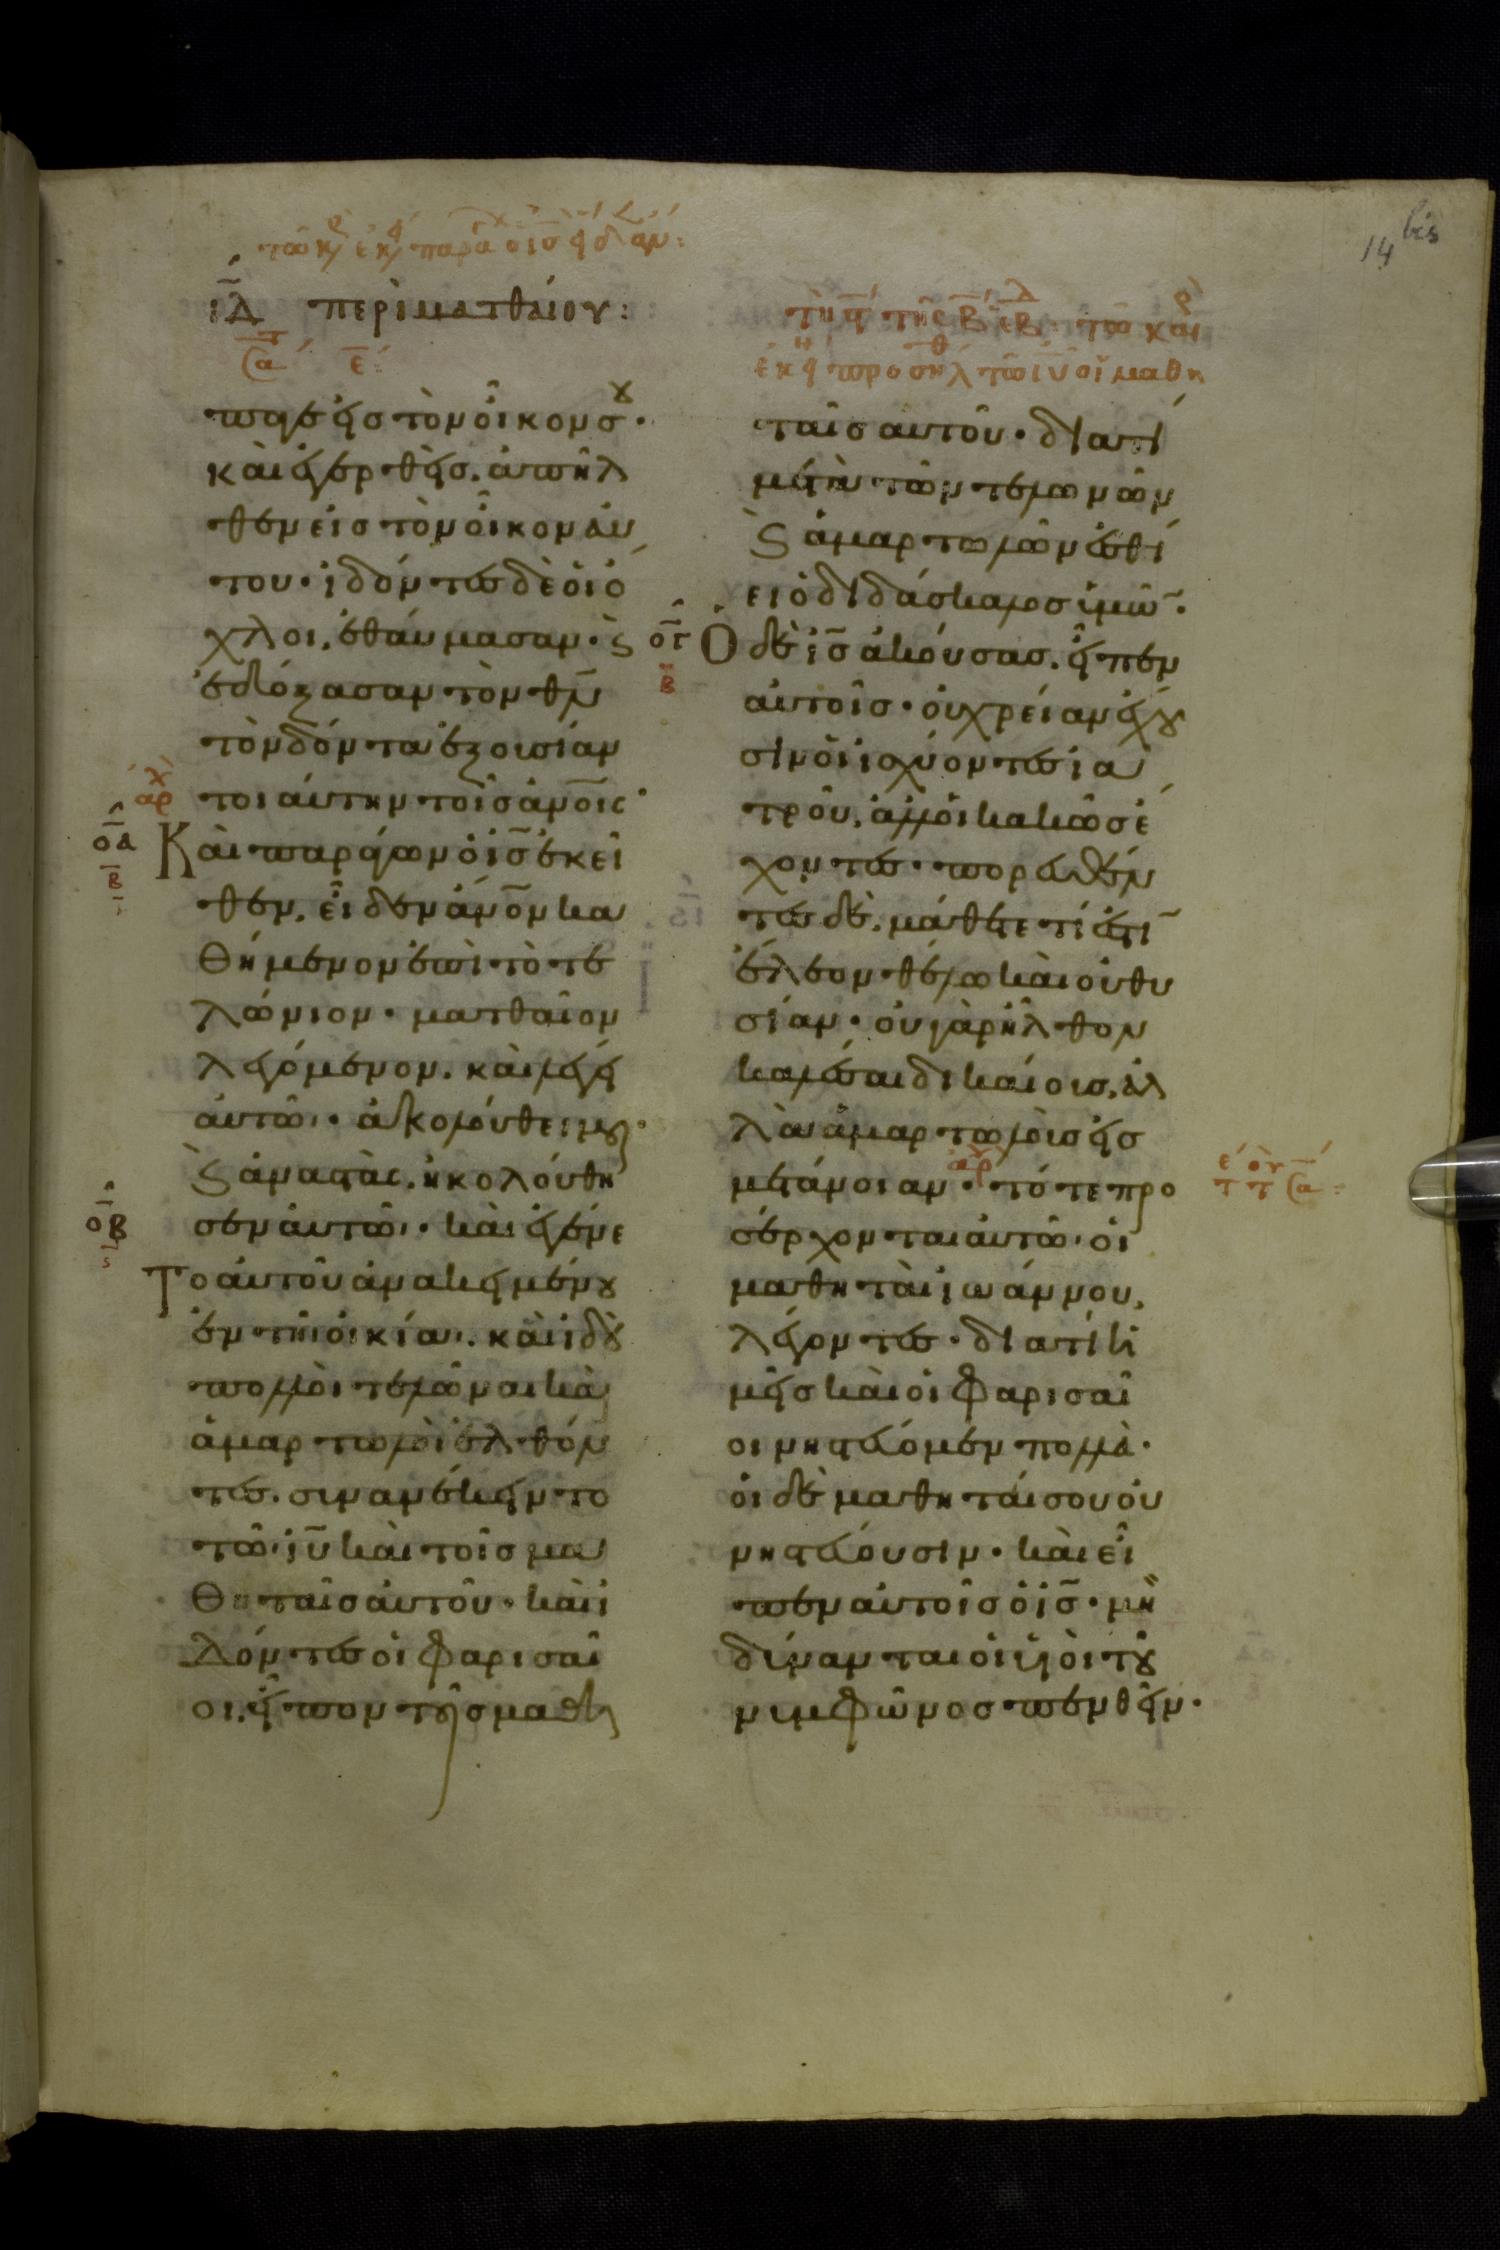 14 bis
ιδ περὶ ματθαίου:
σα ε:
παγε εἰς τὸν οἶκον σου·
καὶ ἐγερθεὶς. ἀπῆλ
θεν εἰς τὸν οἶκον αὐ
του· ἰδόντες δὲ οἱ ὄ
χλοι, ἐθαύμασαν· ϗ
ἐδόξασαν τὸν θν
τὸν δόντα ἐξουσίαν
τοιάυτην τοῖς ἀνοις·
αρχ
οα
β
Καὶ παράγων ὁ ις ἐκεῖ
θεν, εἶδεν ἄνον κα
θήμενον ἐπὶ τὸ τε
λώνιον· ματθαῖον
λεγόμενον. καὶ λέγει
αὐτῶ· ἀκολούθει μοι·
ϗ ἀναστὰς. ἠκολούθη
σεν αὐτῶ· καὶ ἐγένε
οβ
Το αὐτοῦ ἀνακειμένου
ἐν τῆι οἰκίαι. καὶ ἰδοὺ
πολλοὶ τελῶναι καὶ
ἁμαρτωλοὶ ἐλθόν
τες. συνανέκειντο
τῶ ιυ καὶ τοῖς μα
θηταῖς αὐτοῦ· καὶ ἰ
δόντες οἱ φαρισαῖ
οι. εἶπον τοῖς μαθη
ταῖς αυτοῦ· διατί
μετὰ τῶν τελωνῶν
ϗ ἁμαρτωλῶν ἐσθί
ει ὁ διδάσκαλος ὑμῶν·
ογ
β
Ὁ δὲ ις ἀκούσας. εἶπεν
αὐτοῖς· οὐ χρείαν ἔχου
σιν οἱ ἰσχύοντες ἰα
τροῦ, ἀλλ οἱ κακῶς ἔ
χοντες· πορευθέν
τες δὲ. μάθετε τί ἐστι
ἔλεον θέλω καὶ οὐ θυ
σίαν· οὐ γὰρ ἦλθον
καλέσαι δικαίους, ἀλ
λὰ ἁμαρτωλοὺς εἰς
μετάνοιαν· τότε προ
σέρχονται αὐτῶ οἱ
μαθηταὶ ἰωάννου,
λέγοντες· διατί ἡ
μεῖς καὶ οἱ φαρισαῖ
οι νηστεύομεν πολλὰ·
οἱ δὲ μαθηταί σου οὐ
νηστεύουσιν· καὶ εἶ
πεν αὐτοῖς ὁ ις· μὴ
δύνανται οἱ υἱοὶ τοῦ
νυμφῶνος πενθεῖν·